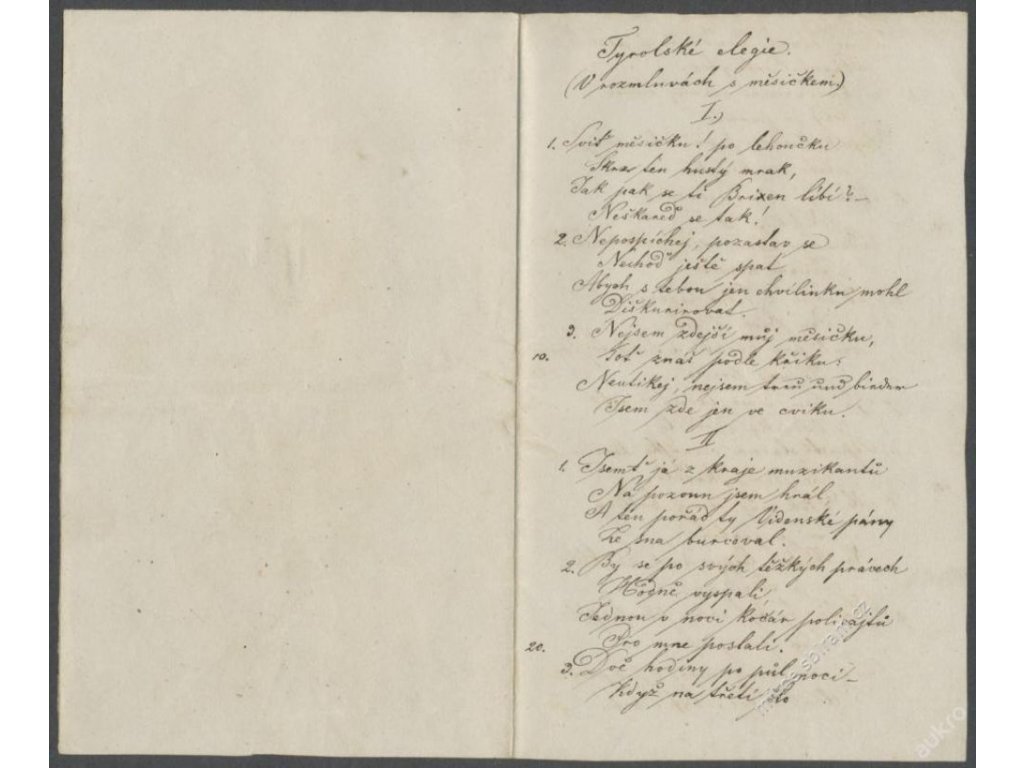 Tyrolské elegie.
(V rozmluvách s měsíčkem.)
I.)
1. Sviť měsíčku! po lehoučku
Skrz ten hustý mrak,
Jak pak se ti Brixen líbí? –
Neškareď se tak!
2. Nepospíchej, pozastav se
Nechoď ještě spat
Abych s tebou jen chvilinku mohl
Diškurirovat.
3. Nejsem zdejší můj měsíčku,
10. Toť znáš podle křiku:
Neutíkej, nejsem treu und bieder
Jsem zde jen ve cviku.
II
1. Jsemť já z kraje muzikantů
Na pozoun jsem hrál
A ten pořád ty Vídenské pány
Ze sna burcoval.
2. By se po svých těžkých prácech
Hodně vyspali,
Jednou v noci kočár policajtů
20. Pro mne poslali.
3. Dvě hodiny po půl noci –
Když na třetí šlo
aukro